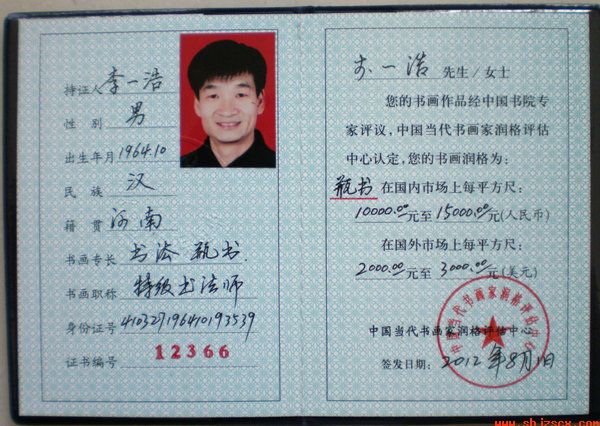 持证人 李一浩
性 别 男
出生年月 1964.10
民 族 汉
籍 贯 河南
书画专长 书法 瓶书
书画职称 特级书法师
身份证号
证书编号 12366
李一浩 先生/女士
您的书画作品经中国书院专
家评议,中国当代书画家润格评估
中心认定,您的书画润格为:
瓶书 在国内市场上每平方尺:
10000.00元至15000.00元(人民币)
在国外市场上每平方尺:
2000.00元至3000.00元(美元)
中国当代书画家润格评估中心
签发日期: 2012年8月1日
中国当代书画家润格评估中心
www.shizscx.com